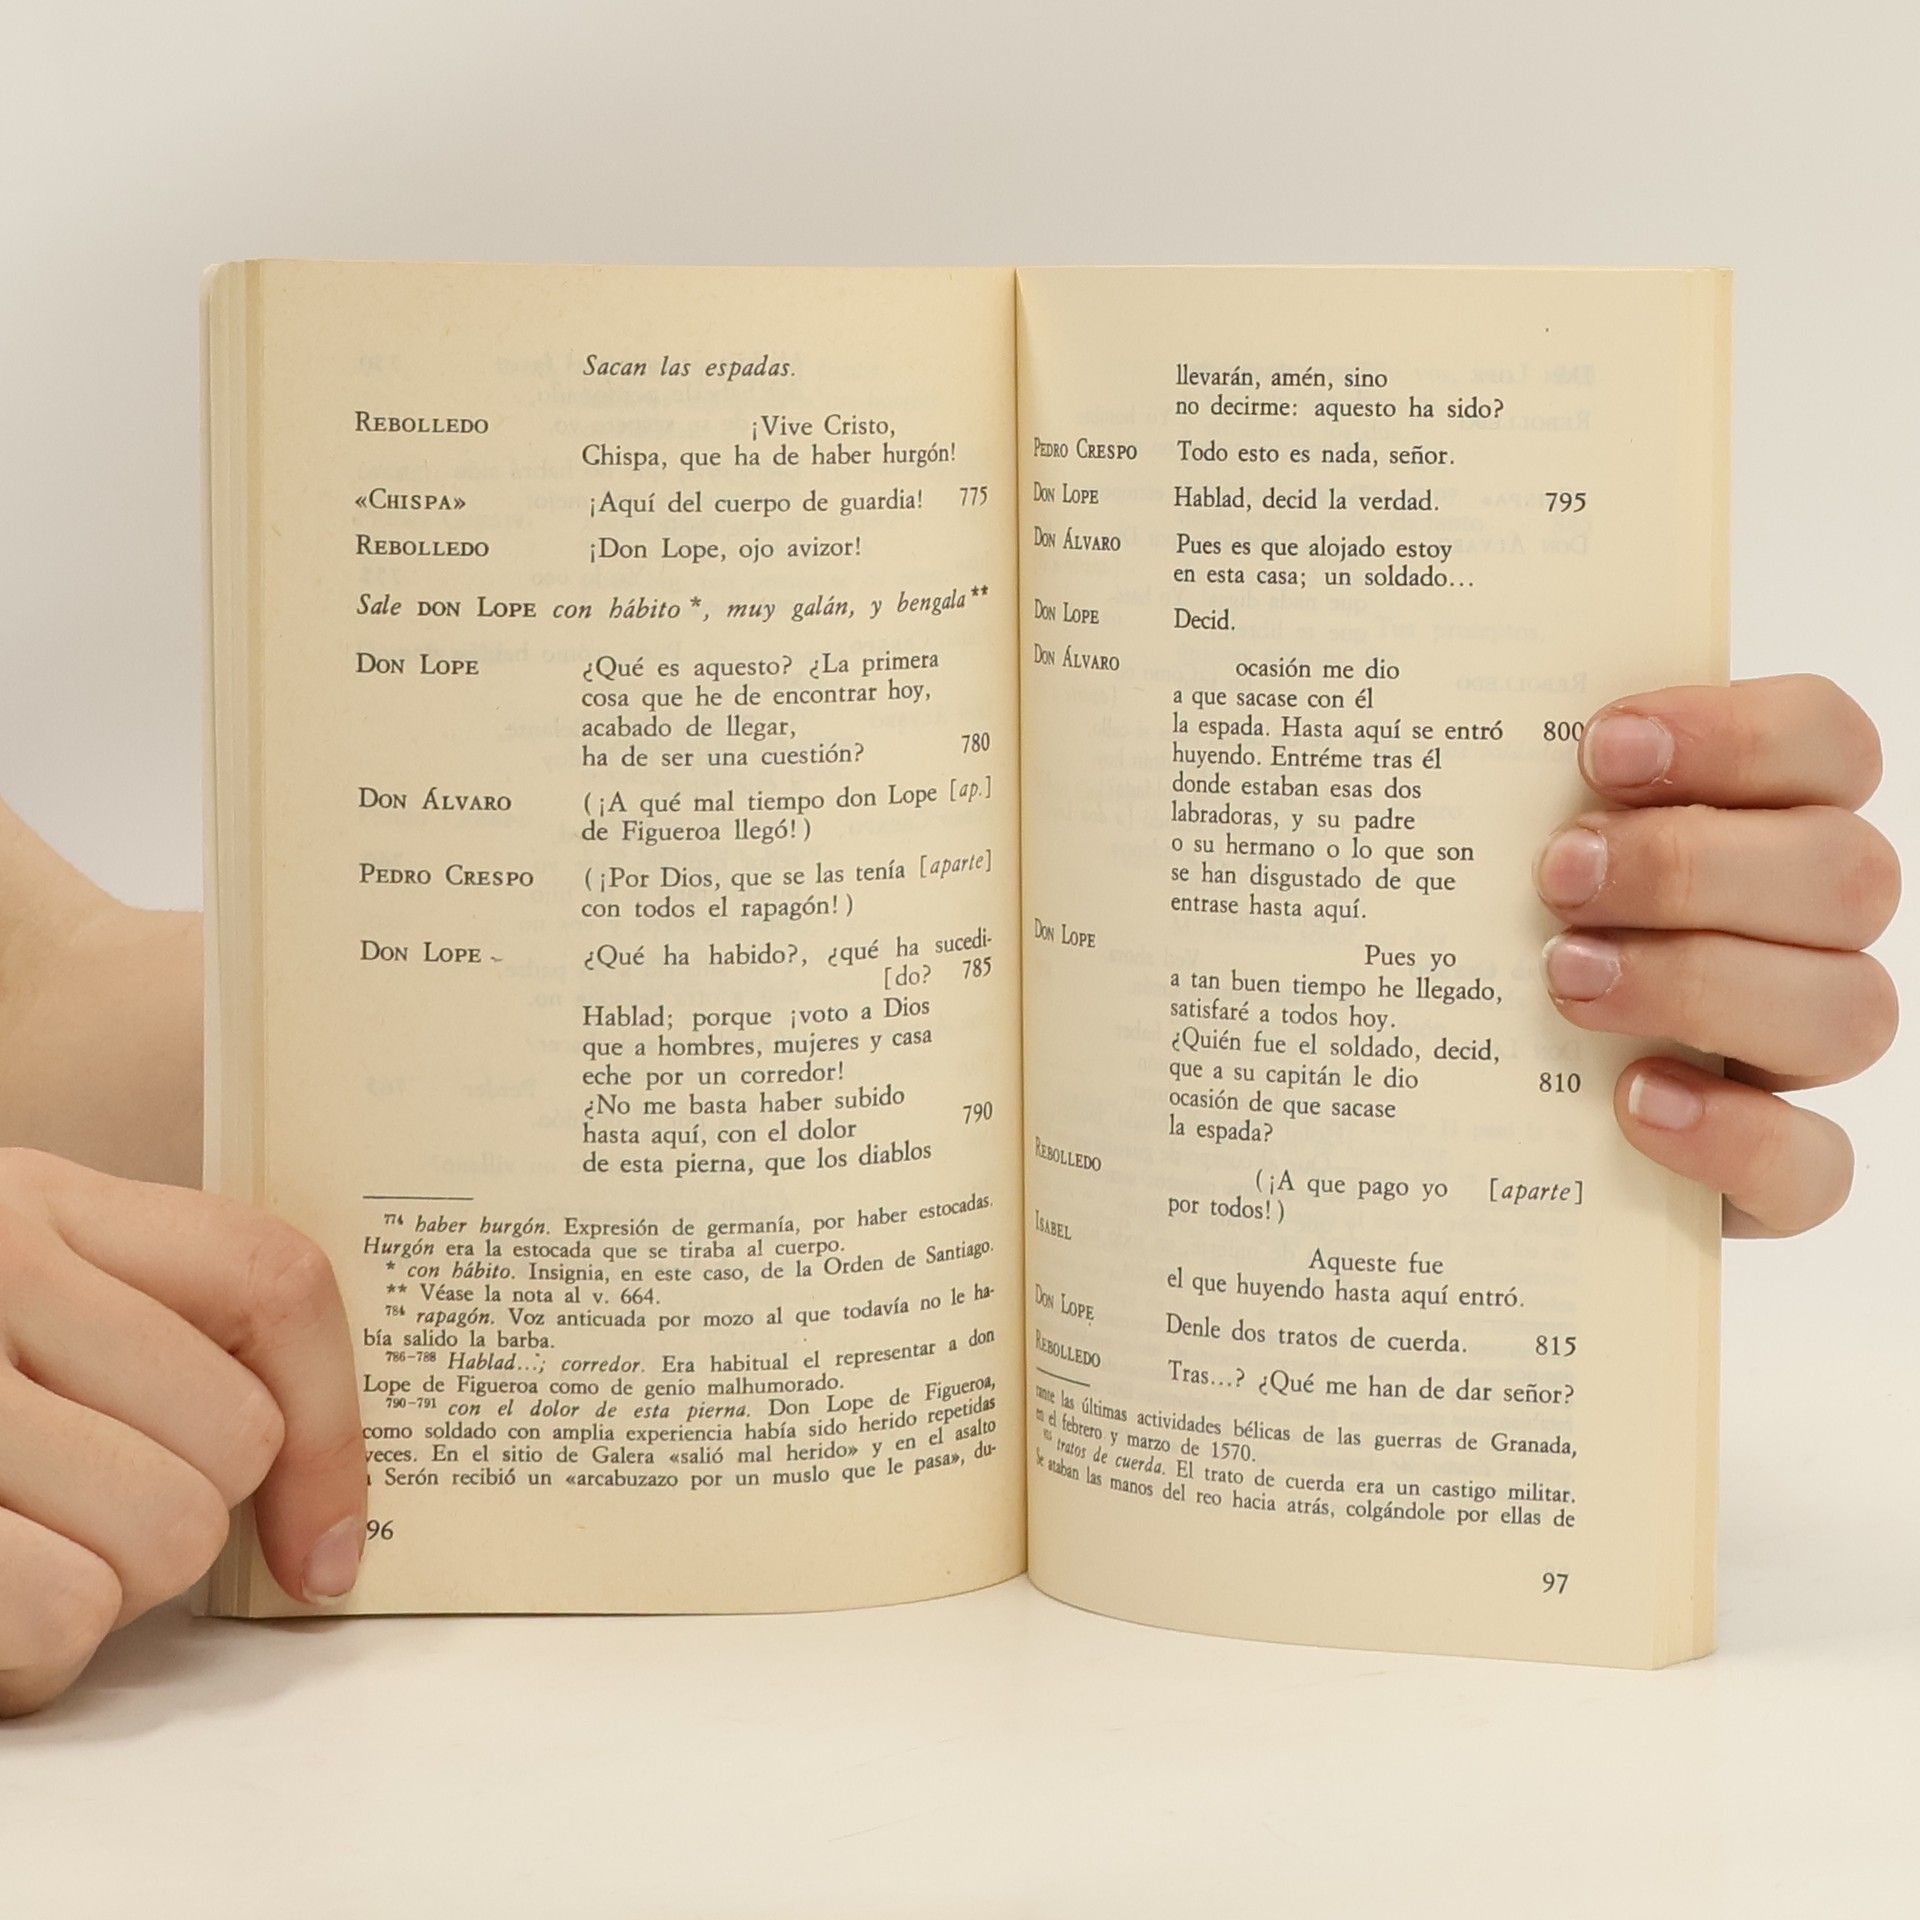 Sacan las espadas.
REBOLLEDO ¡Vive Cristo,
Chispa, que ha de haber hurgón!
«CHISPA» ¡Aquí del cuerpo de guardia! 775
REBOLLEDO ¡Don Lope, ojo avizor!
Sale DON LOPE con hábito *, muy galán, y bengala **
DON LOPE ¿Qué es aquesto? ¿La primera
cosa que he de encontrar hoy,
acabado de llegar,
ha de ser una cuestión? 780
DON ÁLVARO (¡A qué mal tiempo don Lope [ap.]
de Figueroa llegó!)
PEDRO CRESPO (¡Por Dios, que se las tenía [aparte]
con todos el rapagón!)
DON LOPE ¿Qué ha habido?, ¿qué ha sucedi-
[do? 785
Hablad; porque ¡voto a Dios
que a hombres, mujeres y casa
eche por un corredor!
¿No me basta haber subido
hasta aquí, con el dolor 790
de esta pierna, que los diablos
774 haber hurgón. Expresión de germanía, por haber estocadas.
Hurgón era la estocada que se tiraba al cuerpo.
* con hábito. Insignia, en este caso, de la Orden de Santiago.
** Véase la nota al v. 664.
784 rapagón. Voz anticuada por mozo al que todavía no le ha-
bía salido la barba.
786-788 Hablad...; corredor. Era habitual el representar a don
Lope de Figueroa como de genio malhumorado.
790-791 con el dolor de esta pierna. Don Lope de Figueroa,
como soldado con amplia experiencia había sido herido repetidas
veces. En el sitio de Galera «salió mal herido» y en el asalto
Serón recibió un «arcabuzazo por un muslo que le pasa», du-
96
llevarán, amén, sino
no decirme: aquesto ha sido?
PEDRO CRESPO Todo esto es nada, señor.
DON LOPE Hablad, decid la verdad. 795
DON ÁLVARO Pues es que alojado estoy
en esta casa; un soldado...
DON LOPE Decid.
DON ÁLVARO ocasión me dio
a que sacase con él
la espada. Hasta aquí se entró 800
huyendo. Entréme tras él
donde estaban esas dos
labradoras, y su padre
o su hermano o lo que son
se han disgustado de que
entrase hasta aquí.
DON LOPE Pues yo
a tan buen tiempo he llegado,
satisfaré a todos hoy.
¿Quién fue el soldado, decid,
que a su capitán le dio 810
ocasión de que sacase
la espada?
REBOLLEDO (¡A que pago yo [aparte]
por todos!)
ISABEL Aqueste fue
el que huyendo hasta aquí entró.
DON LOPE Denle dos tratos de cuerda. 815
REBOLLEDO Tras...? ¿Qué me han de dar señor?
rante las últimas actividades bélicas de las guerras de Granada,
en el febrero y marzo de 1570.
tratos de cuerda. El trato de cuerda era un castigo militar.
Se ataban las manos del reo hacia atrás, colgándole por ellas de
97